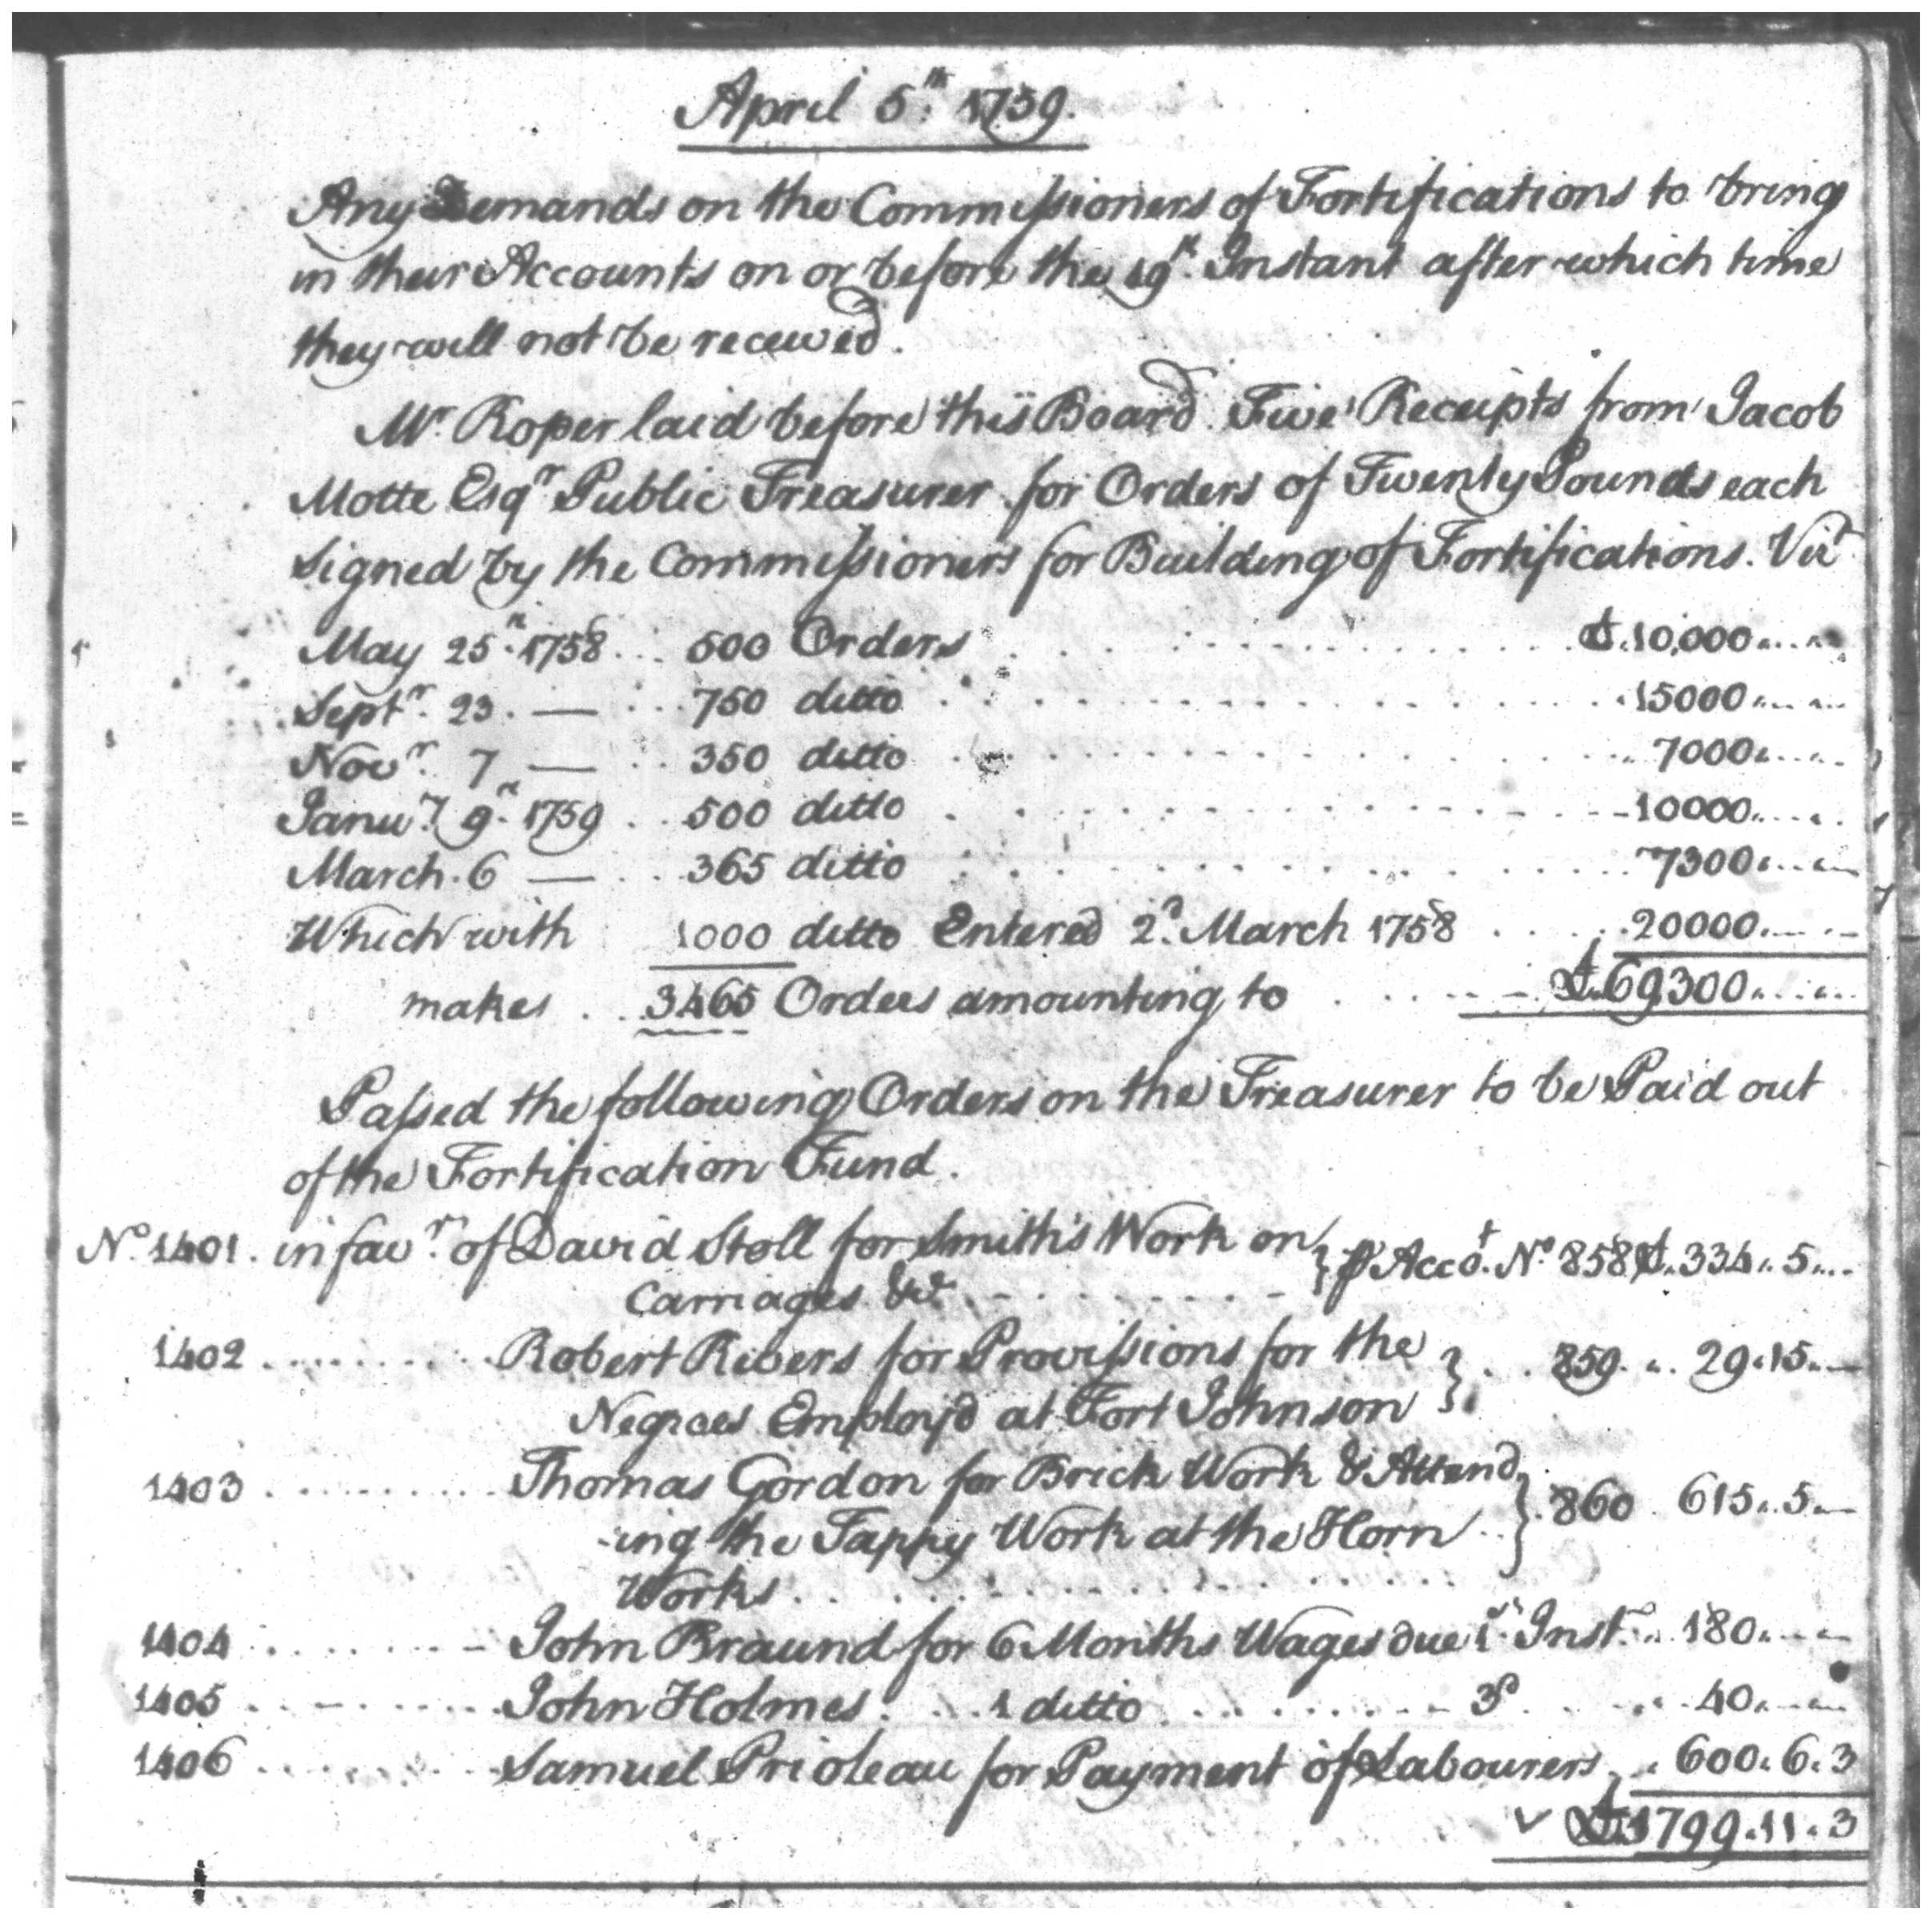 April 5.th 1759.
Any Demands on the Commissioners of Fortifications to bring
in their Accounts on or before the 19th. Instant after which time
they will not be received.
Mr. Roper laid before this Board Five Receipts from Jacob
Motte Esqr Public Treasurer for Orders of Twenty Pounds each
signed by the Commissioners for Building of Fortifications. Vizt
May 25th. 1758 ... 500 Orders . . . . . £.10,000.. .. ..
Septr. 23. — ... 750 ditto . . . . . 15000.. .. ..
Novr. 7 — .. 350 ditto . . . . . 7000.. .. ..
Janury. 9th. 1759 .. 500 ditto . . . . . 10000.. .. ..
March. 6 — .. 365 ditto . . . . . 7300.. .. ..
Which with 1000 ditto Entered 2d. March 1758 . . . . 20000.. .. ..
makes . . 3465 Orders amounting to . . . . £.69300.. .. ..
Passed the following Orders on the Treasurer to be Paid out
of the Fortification Fund.
No. 1401. in favr. of David Stoll for Smith's Work on } p Accot. No. 858 £.334.. 5...
Carriages &ca. . . . . .
1402 . . . . . Robert Rivers for Provissions for the } . . 859. .. 29.15.. —
Negroes Employ'd at Fort Johnson
1403 . . . . . Thomas Gordon for Brick Work & Attend } . 860 . 615.. 5.. —
-ing the Tappy Work at the Horn
Works. . . . . .
1404 . . . . . John Braund for 6 Months Wages due 1st. Inst. .. 180.. .. ..
1405 . . . . . John Holmes. . . 1 ditto . . . . . 3d. . . . 40.. .. ..
1406 . . . . . Samuel Prioleau for Payment of Labourers .. 600. 6. 3
£.1799.11.3